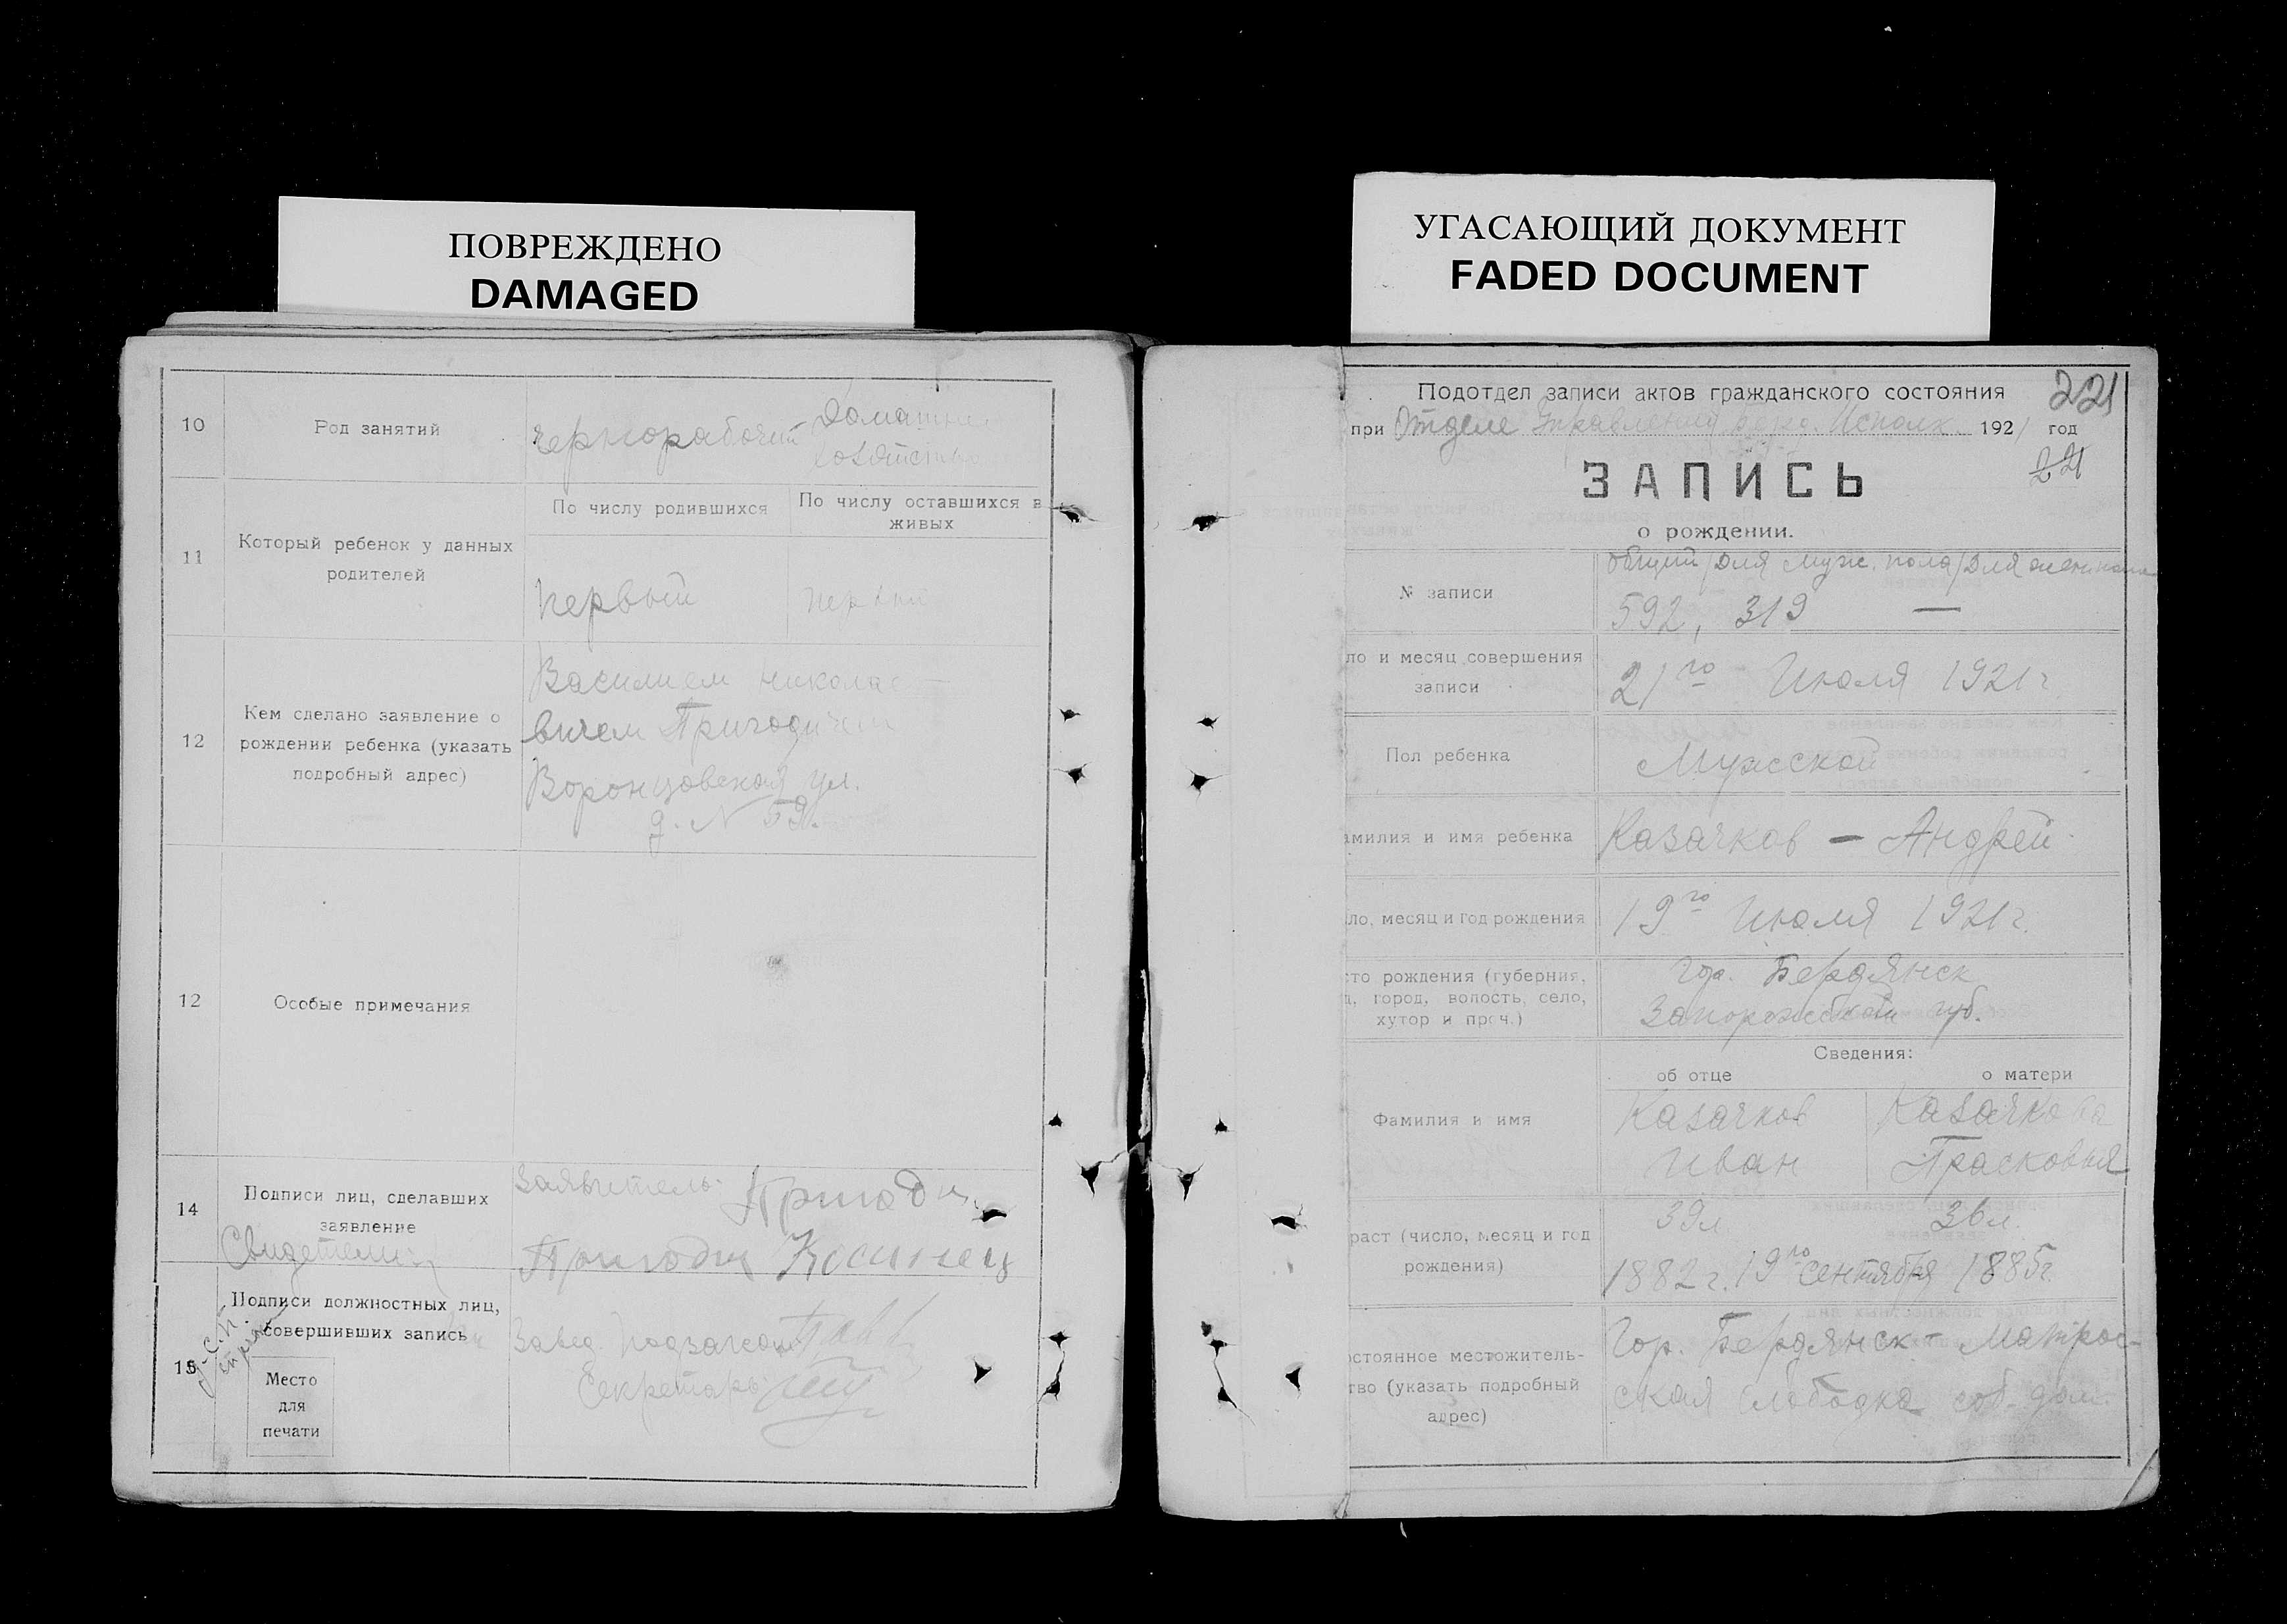 ПОВРЕЖДЕНО
DAMAGED
10
Род занятий
чернорабочий
Домашнее
хозяйство
11
Который ребенок у данных
родителей
По числу родившихся
По числу оставшихся в
живых
первый
первый
12
Кем сделано заявление о
рождении ребенка (указать
подробный адрес)
Василием Николае-
вичем
Воронцовская ул.
д. № 59.
12
Особые примечания
14
Подписи лиц, сделавших
заявление
Свидетели:
Заявитель:
15
Подписи должностных лиц,
совершивших запись
Место
для
печати
Завед.
Секретарь
УГАСАЮЩИЙ ДОКУМЕНТ
FADED DOCUMENT
221
Подотдел записи актов гражданского состояния
при Отделе Управления Берд. Исполк. 1921 год
ЗАПИСЬ
о рождении.
№ записи
общий / для муж. пола / для
592, 319 —
ло и месяц совершения
записи
21го Июля 1921 г.
Пол ребенка
Мужской
амилия и имя ребенка
Казачков — Андрей
ло, месяц и год рождения
19го Июля 1921 г.
сто рождения (губерния,
д, город, волость, село,
хутор и проч.)
гор. Бердянск
Запорожской губ.
Сведения:
об отце
о матери
Фамилия и имя
Казачков
Иван
Казачкова
Прасковья
раст (число, месяц и год
рождения)
39 л.
1882 г. 19го сентября
36 л.
1885 г.
остоянное местожитель-
тво (указать подробный
адрес)
Гор. Бердянск - Матрос-
ская слободка соб. дом.